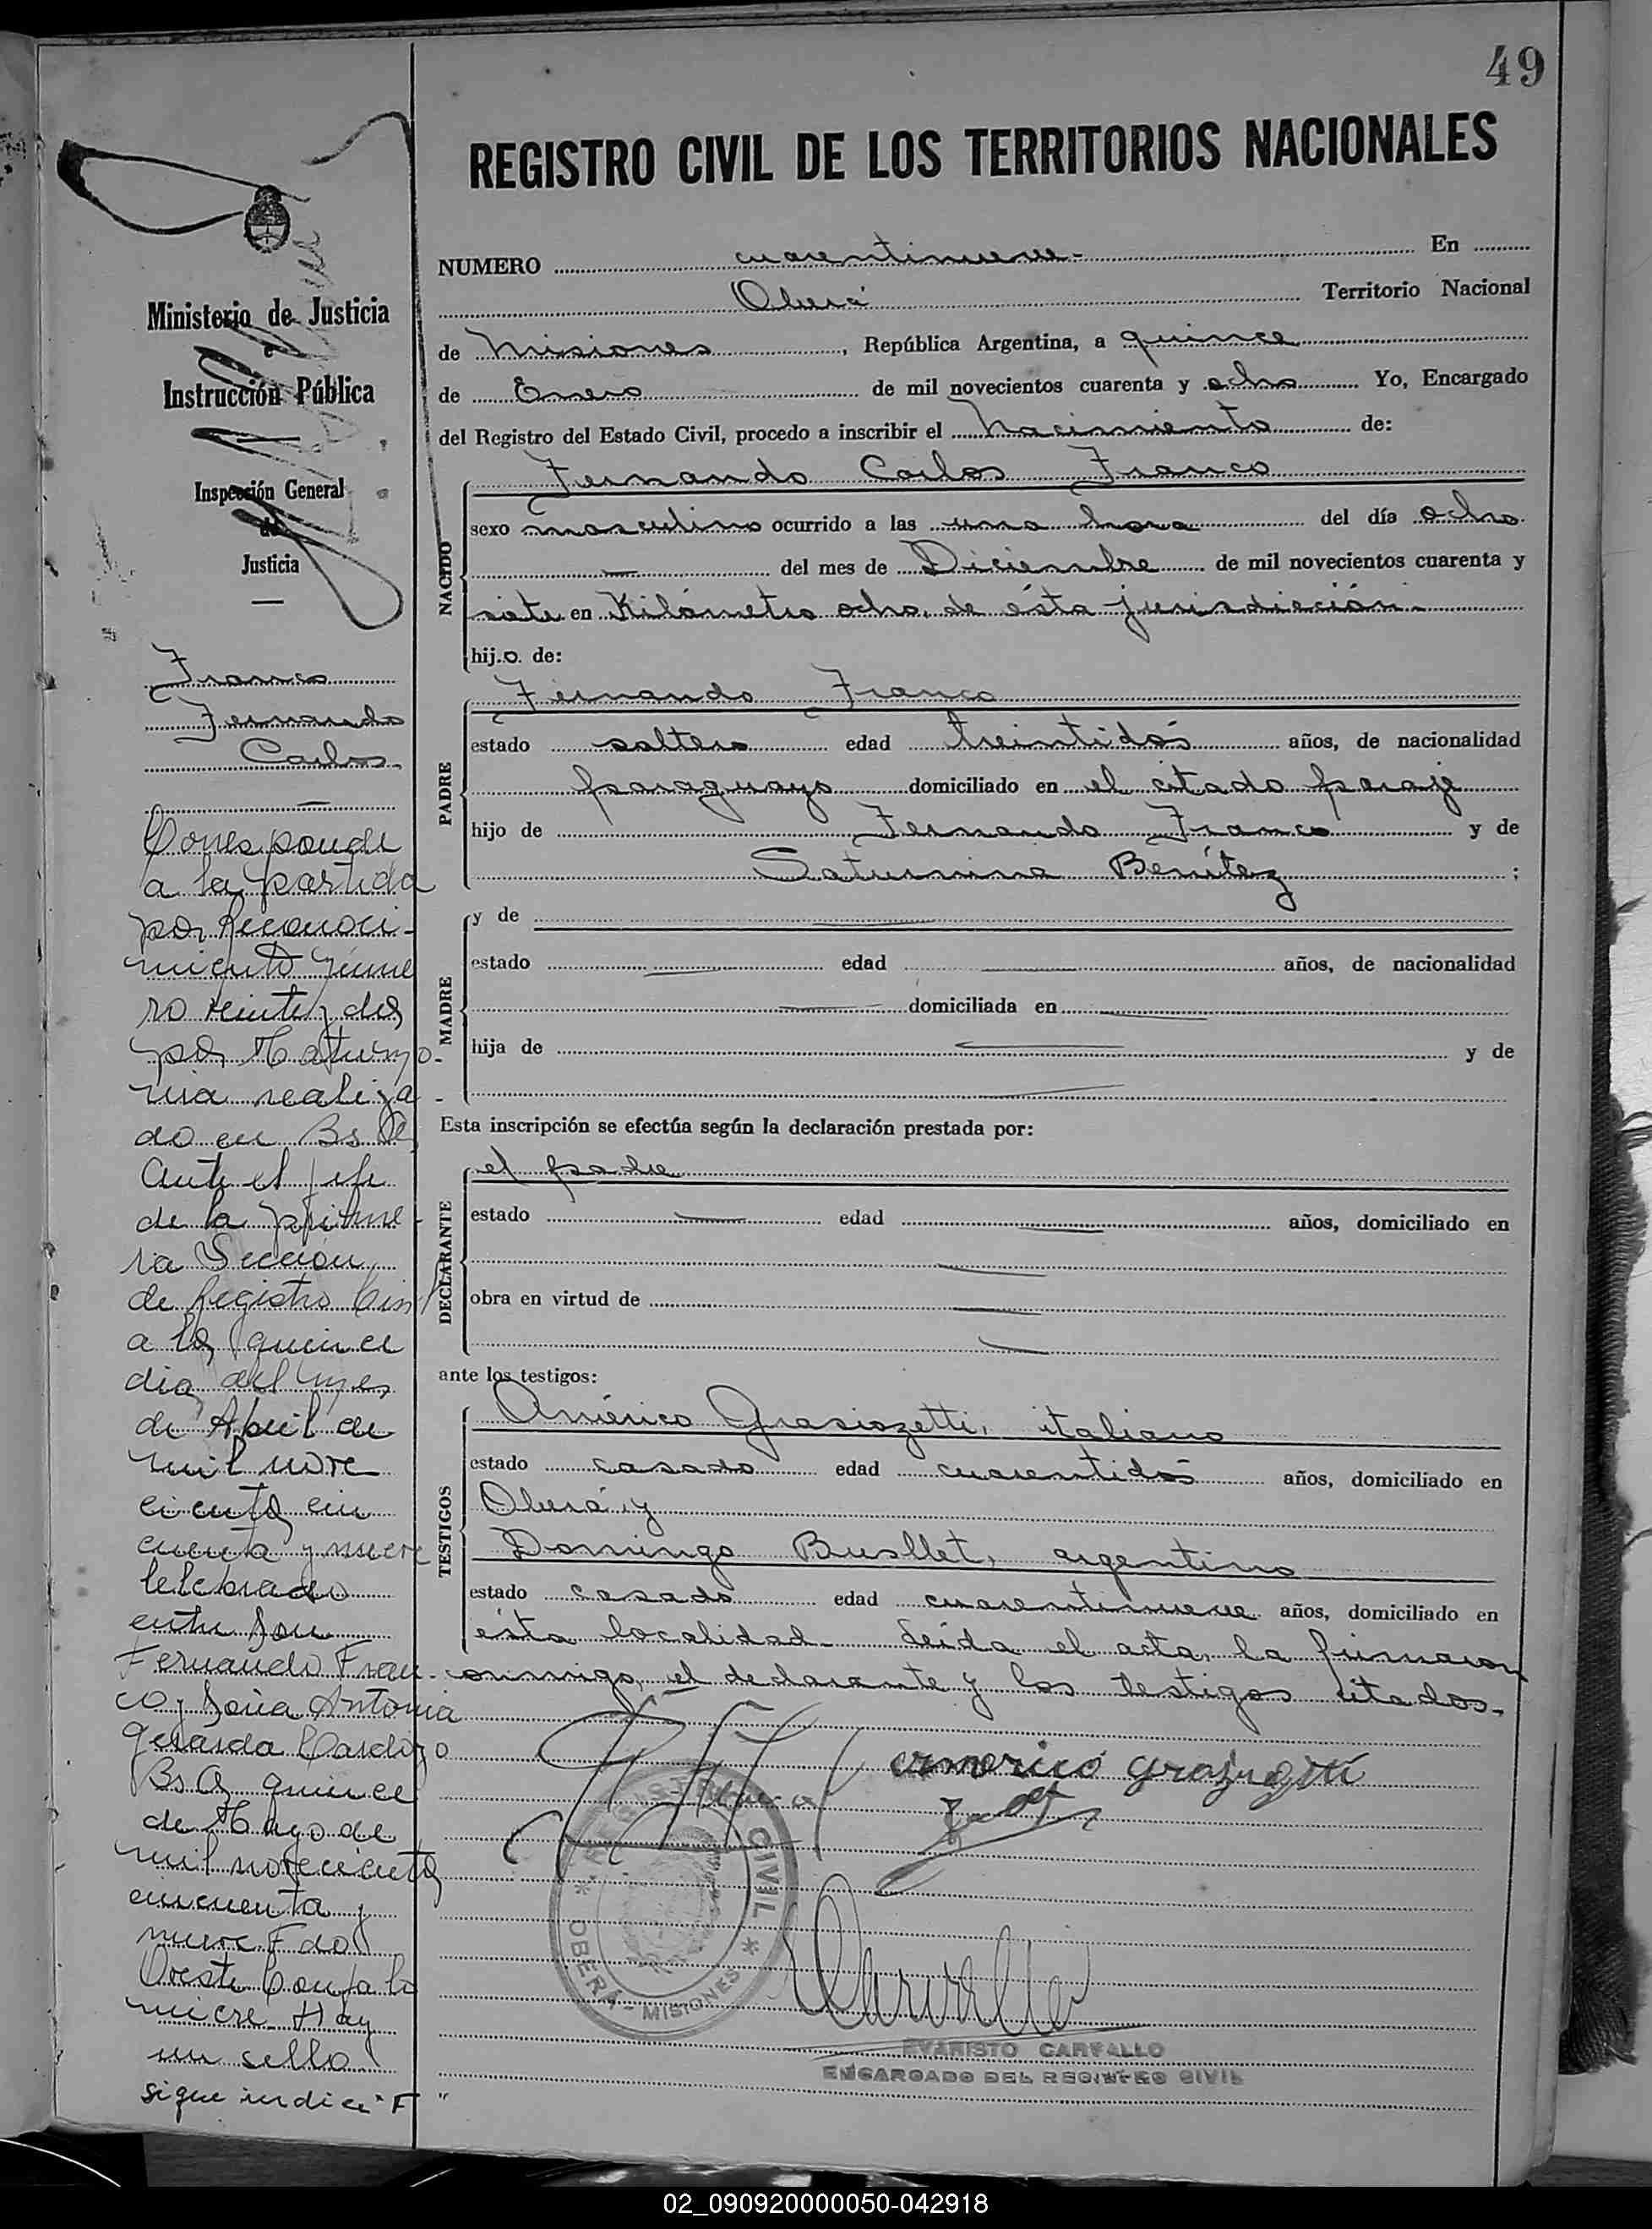 49
REGISTRO CIVIL DE LOS TERRITORIOS NACIONALES
NUMERO cuarentinueve.- En
Oberá Territorio Nacional
de Misiones, República Argentina, a quince
de Enero de mil novecientos cuarenta y ocho Yo, Encargado
del Registro del Estado Civil, procedo a inscribir el Nacimiento de:
NACIDO
Fernando Carlos Franco
sexo masculino ocurrido a las una hora del día ocho
— del mes de Diciembre de mil novecientos cuarenta y
siete en Kilómetro ocho, de ésta jurisdicción.-
hij.o. de:
PADRE
Fernando Franco
estado soltero edad treintidós años, de nacionalidad
paraguayo domiciliado en el citado paraje
hijo de Fernando Franco y de
Saturnina Benítez ;
MADRE
y de —
estado — edad — años, de nacionalidad
— domiciliada en —
hija de — y de
—
Esta inscripción se efectúa según la declaración prestada por:
DECLARANTE
el padre
estado — edad — años, domiciliado en
—
obra en virtud de —
—
ante los testigos:
TESTIGOS
Américo Grasiozetti, italiano
estado casado edad cuarentidós años, domiciliado en
Oberá y
Domingo Busllet, argentino
estado casado edad cuarentinueve años, domiciliado en
ésta localidad.- Leída el acta, la firmaron
conmigo, el declarante y los testigos citados.-
REGISTRO CIVIL
* OBERÁ - MISIONES *
EVARISTO CARVALLO
ENCARGADO DEL REGISTRO CIVIL
Ministerio de Justicia
e
Instrucción Pública
Inspección General
de
Justicia
—
Franco
Fernando
Carlos.
—
Corresponde
a la partida
por Reconoci-
miento núme
ro veinte y dos
por Matrimo-
nia realiza-
do en Bs As
Ante el jefe
de la prime-
ra Sección
de Registro Civil
a los quince
dia del mes
de Abril de
mil nove
cientos cin
cuenta y nueve
celebrado
entre Don
Fernando Fran-
co y Doña Antonia
Gerarda Cardozo
Bs As quince
de Mayo de
mil novecientos
cincuenta y
nueve Fdo
Oreste
Hay
un sello
sigue indice "F"
02_090920000050-042918